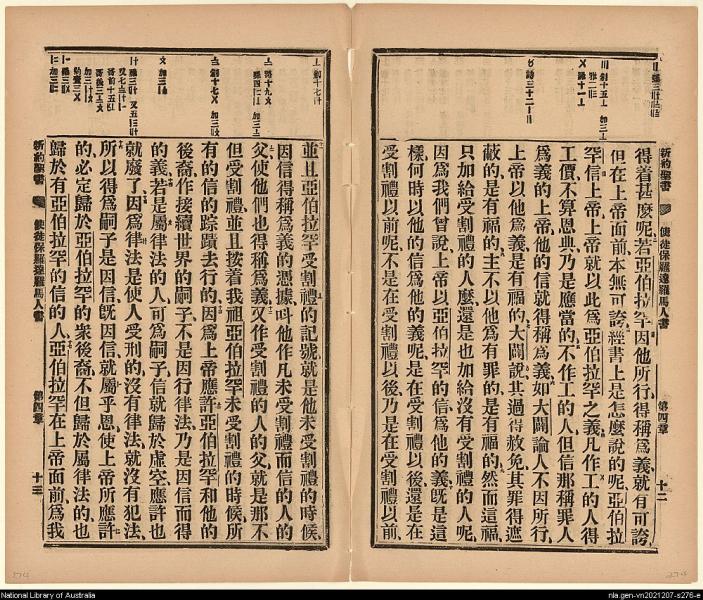 新約聖書
使徒保羅達羅馬人書
第四章
十二
得着甚麼呢若亞伯拉罕因他所行得稱爲義就有可誇
但在上帝面前本無可誇經書上是怎麼說的呢亞伯拉
罕信上帝上帝就以此爲亞伯拉罕之義凡作工的人得
工價不算恩典乃是應當的不作工的人但信那稱罪人
爲義的上帝他的信就得稱爲義如大闢論人不因所行
上帝以他爲義是有福的大闢說其過得赦免其罪得遮
蔽的是有福的主不以他爲有罪的是有福的然而這福
只加給受割禮的人麼還是也加給沒有受割禮的人呢
因爲我們曾說上帝以亞伯拉罕的信爲他的義旣是這
樣何時以他的信爲他的義呢是在受割禮以後還是在
受割禮以前呢不是在受割禮以後乃是在受割禮以前
並且亞伯拉罕受割禮的記號就是他未受割禮的時候
因信得稱爲義的憑據呌他作凡未受割禮而信的人的
父使他們也得稱爲義又作受割禮的人的父就是那不
但受割禮並且按着我祖亞伯拉罕未受割禮的時候所
有的信的踪蹟去行的因爲上帝應許亞伯拉罕和他的
後裔作接續世界的嗣子不是因行律法乃是因信而得
的義若是屬律法的人可爲嗣子信就歸於虛空應許也
就廢了因爲律法是使人受刑的沒有律法就沒有犯法
所以得爲嗣子是因信旣因信就屬乎恩使上帝所應許
的必定歸於亞伯拉罕的衆後裔不但歸於屬律法的也
歸於有亞伯拉罕的信的人亞伯拉罕在上帝面前爲我
新約聖書
使徒保羅達羅馬人書
第四章
十三
National Library of Australia
nla.gen-vn2021207-s276-e